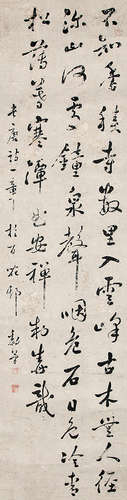 不知香積寺數里入雲峰古木無人徑
深山何處鐘泉聲咽危石日色冷青
松薄暮寒潭曲安禪制毒龍
唐詩一章